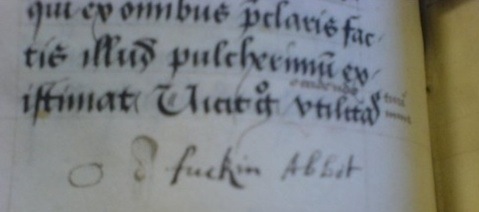 qui ex omnibus p̄claris fac-
tis illud pulcherimū ex-
istimat Vicit
O d fuckin Abbot